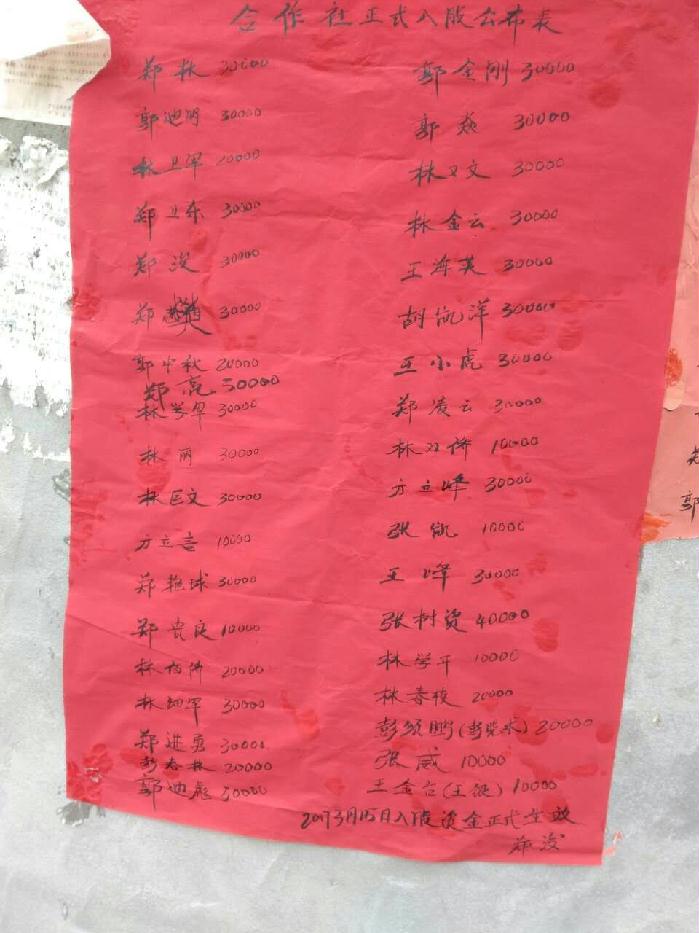 合作社正式入股公布表
郑林 30000
郭迪明 30000
林卫军 20000
郑卫东 30000
郑浚 30000
郑 30000
郭中秋 20000
郑亮 30000
林学军 30000
林丽 30000
林巨文 30000
方立言 10000
郑艳球 30000
郑贵良 10000
林 20000
林 军 30000
郑进勇 30000
彭春林 20000
郭迪彪 30000
郭金刚 30000
郭焱 30000
林又文 30000
林金云 30000
王海英 30000
胡凯洋 30000
王小虎 30000
郑凌云 30000
林双桥 10000
方立峰 30000
张凯 10000
王峰 30000
张树贤 40000
林学平 10000
林春枝 20000
彭 鹏(彭 水) 20000
张威 10000
王金 (王 ) 10000
2017 3月15日入股资金正式生效
郑浚